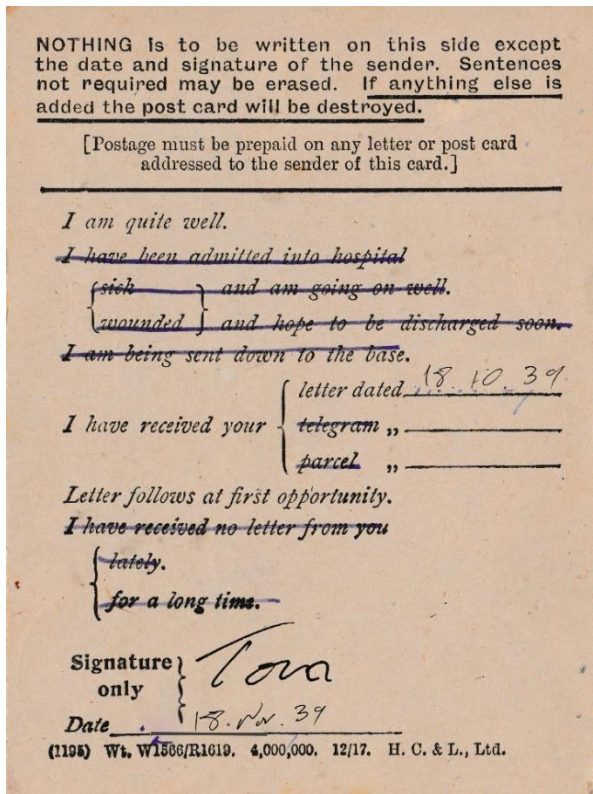 NOTHING is to be written on this side except
the date and signature of the sender. Sentences
not required may be erased. If anything else is
added the post card will be destroyed.
[Postage must be prepaid on any letter or post card
addressed to the sender of this card.]
I am quite well.
I have been admitted into hospital
sick and am going on well.
wounded and hope to be discharged soon.
I am being sent down to the base.
letter dated 18.10.39
I have received your telegram „
parcel „
Letter follows at first opportunity.
I have received no letter from you
lately.
for a long time.
Signature
only
Date 18. Nov. 39
(1195) Wt. W1566/R1619. 4,000,000. 12/17. H. C. & L., Ltd.